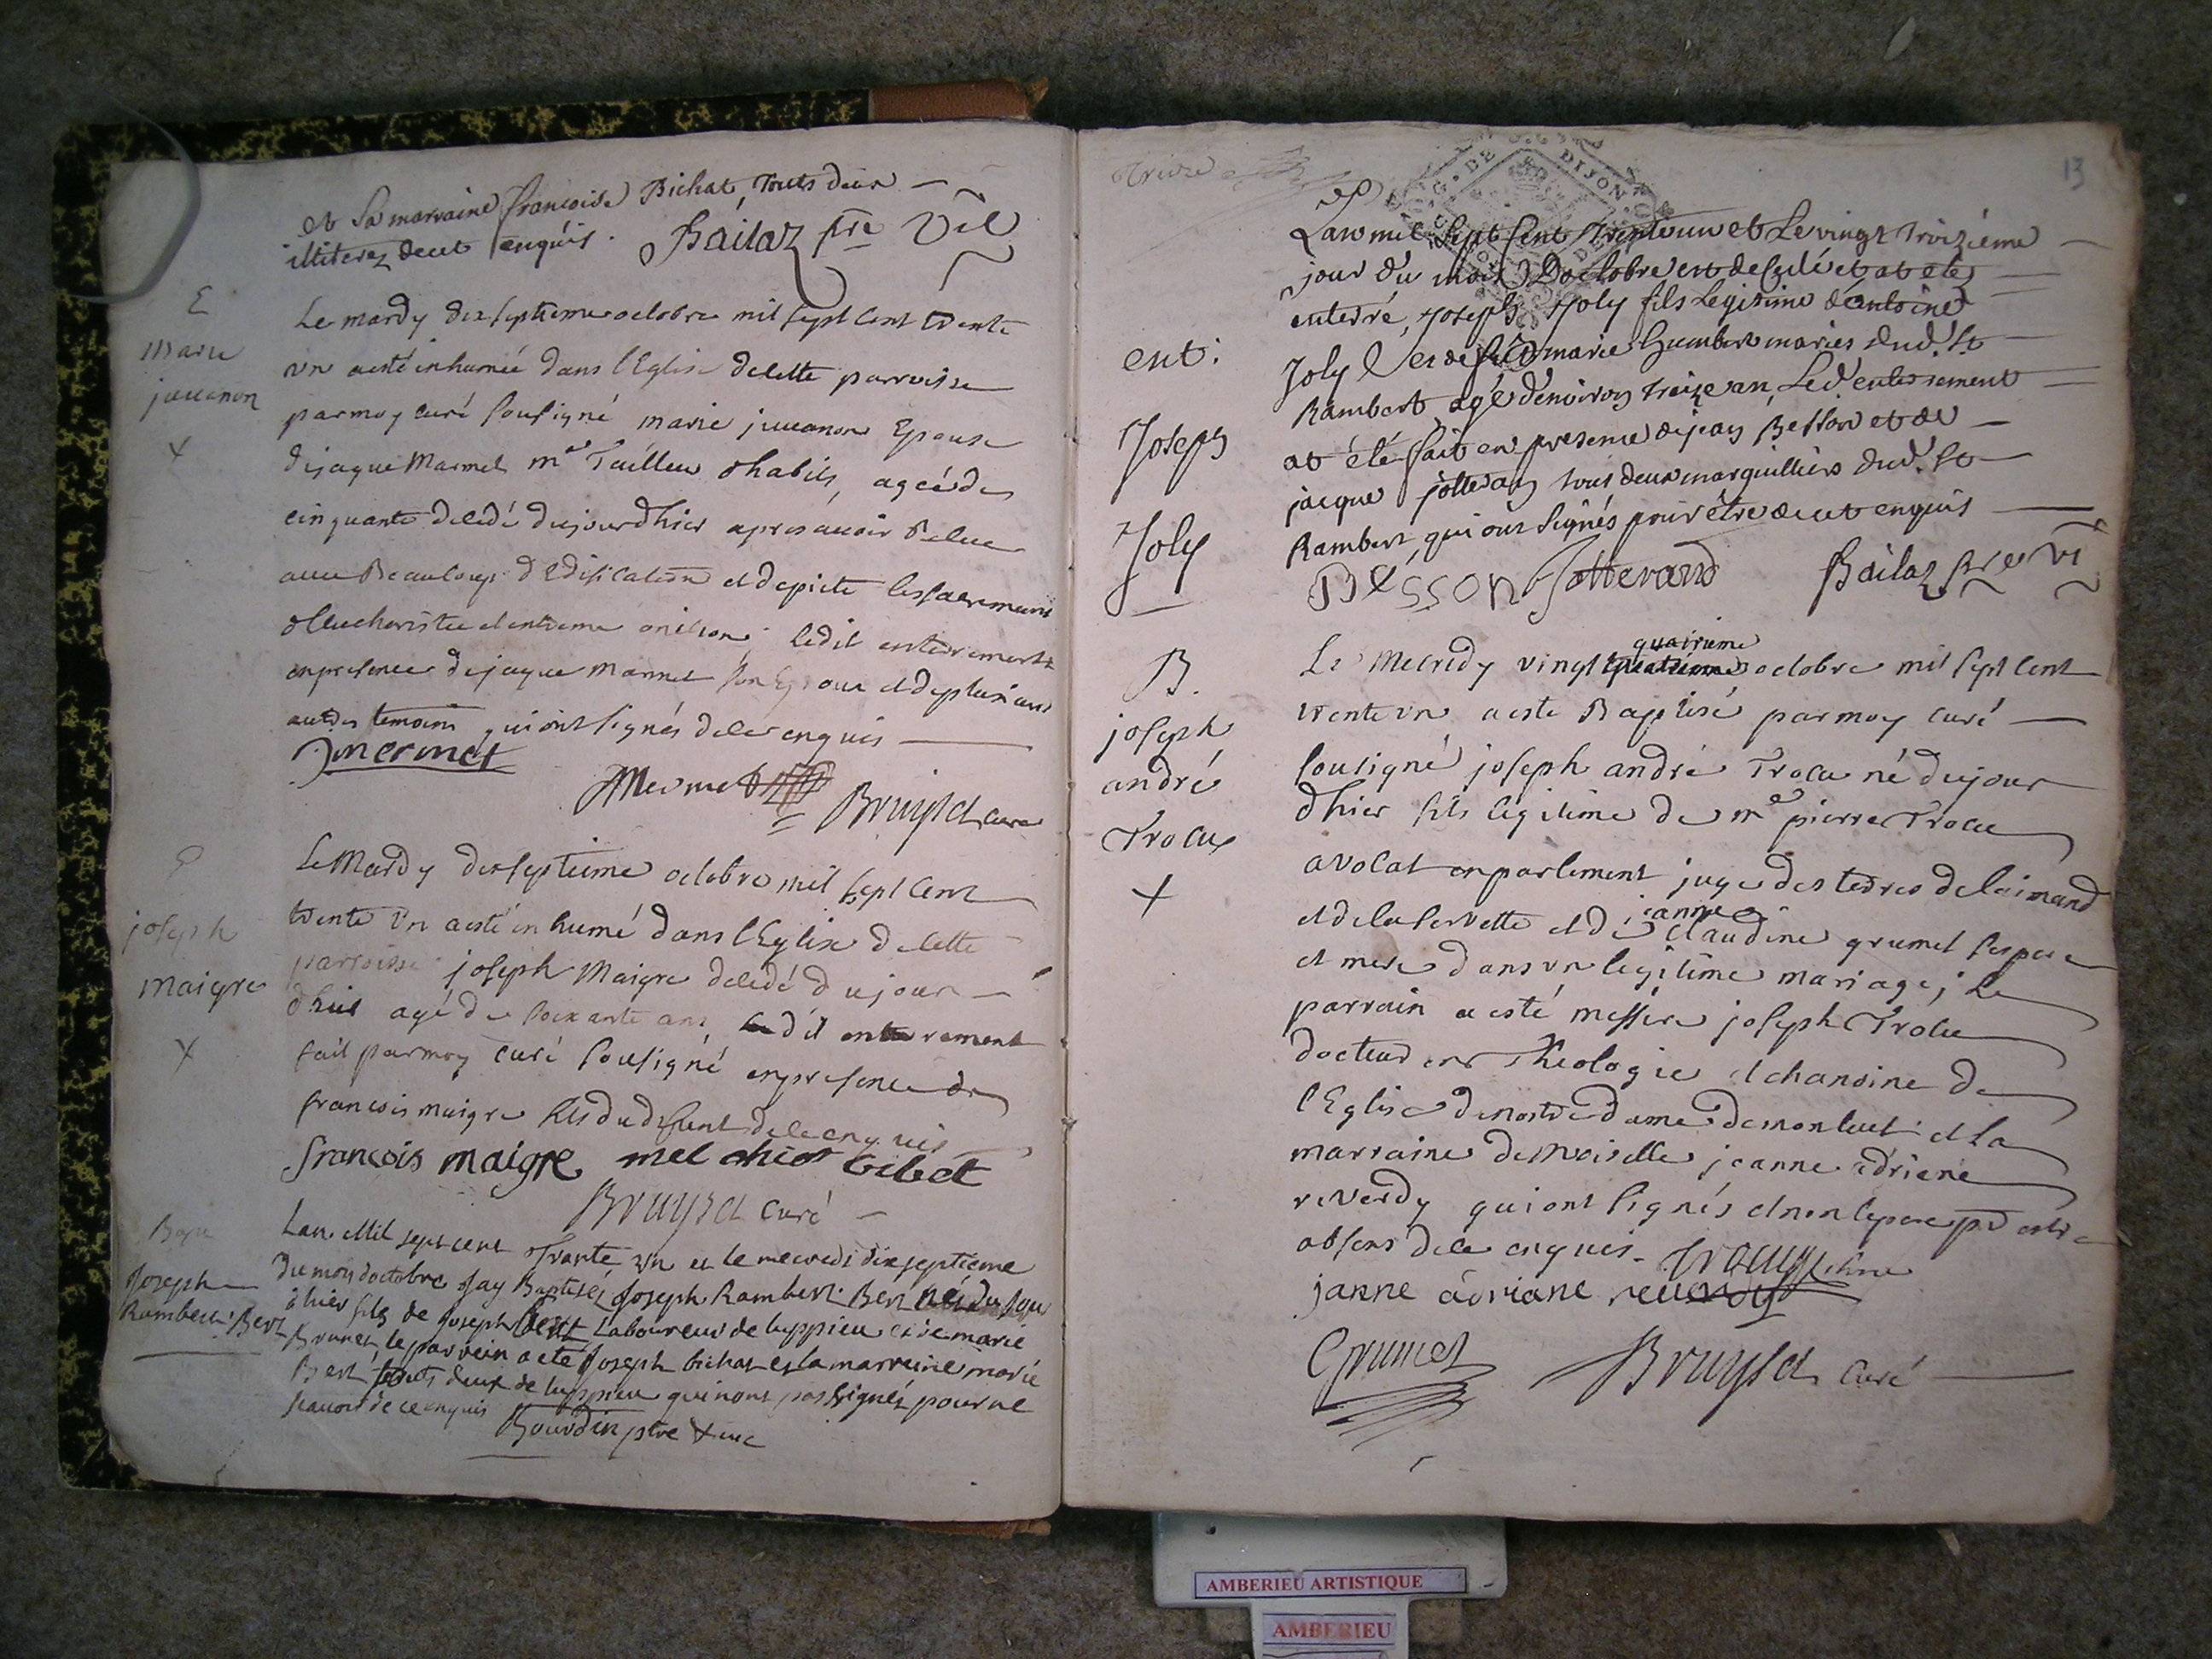 et sa marraine francoise Bichat, touts deux
illiterez de cet enquis. Bailaz ptre vic
E
Marie
juuenon
+
Le mardy dix septieme octobre mil sept cent trente
un a esté inhumée dans l'Eglise de cette parroisse
par moy curé sousigné marie juuenon Epouse
de jaque Marmet me Tailleur d'habits, agée de
cinquante decedé du jourd'hier apres auoir Receu
auec Beaucoup d'Edification et de pieté les sacremens
d'Eucharistie et extreme onction. ledit enterrement
en presence de jaque Marmet son Epoux et de plusieurs
autres temoins qui ont signés de ce enquis
Jmermet
JMermet
Bruyset curé
joseph
maigre
+
Le Mardy dix septieme octobre mil sept cent
trente un a esté inhumé dans l'Eglise de cette
parroisse joseph Maigre decedé du jour
d'hier agé de soixante ans ledit enterrement
fait par moy curé sousigné en presence de
francois maigre fils du defunt de ce enquis
françois maigre melchior bibet
Bruyset curé
Bap
Joseph
Rambert Bert
Lan Mil sept cent Trante un et le mecredi dix septieme
du mois doctobre Jay Baptisés Joseph Rambert Bert né du jour
d'hier fils de Joseph Bert Laboureur de luppieu et de marie
Brunet le parrein a eté Joseph bichat et la marreine marie
Bert touts deux de luppieu qui nont pas signés pour ne
scauoir de ce enquis
Bourdin ptre vic
13
G. DE DIJON
ent.
Joseph
Joly
Lan mil sept cent trente un et Le vingt troiziéme
jour du mois Doctobre est decedé et at eté
enterré, Joseph Joly fils Legitime dantoine
Joly et de marie humbert mariés dud. St
Rambert agé denviron treize an, Led. enterrement
at été fait en presence de jean Besson et de
jacque jotterand tous deux marguilliers dud. St
Rambert, qui ont signés pour être de cet enquis
BESSON Jotterand Bailaz ptre vi
B.
joseph
andré
Trocu
+
Le Mecredy vingt quatrieme octobre mil sept cent
trente un a esté Baptisé par moy curé
sousigné joseph andré Trocu né du jour
d'hier fils legitime de me pierre Trocu
avocat en parlement juge des terres de
et de la servette et de jeanne claudine grumet ses pere
et mere dans un legitime mariage; Le
parrain a esté messire joseph Trocu
docteur en Theologie et chanoine de
l'Eglise de nostre dame de monluel et la
marraine demoiselle jeanne adriene
reverdy qui ont signés et non le pere pr estre
absens de ce enquis. Trocu
janne adriane reuerdy
Grumet Bruyset curé
AMBERIEU ARTISTIQUE
AMBERIEU